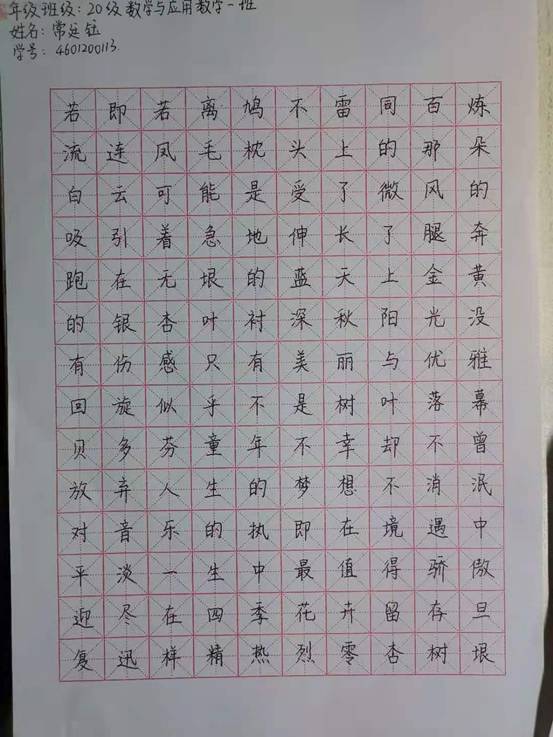 年级班级：20级数学与应用数学一班
姓名：常延钰
学号：4601200113
若即若离鸠不雷同百炼
流连凤毛枕头上的那朵
白云可能是受了微风的
吸引着急地伸长了腿奔
跑在无垠的蓝天上金黄
的银杏叶衬深秋阳光没
有伤感只有美丽与优雅
回旋似乎不是树叶落幕
贝多芬童年不幸却不曾
放弃人生的梦想不消泯
对音乐的执即在境遇中
平淡一生中最值得骄傲
迎尽在四季花卉留存旦
复迅样精热烈零杏树垠